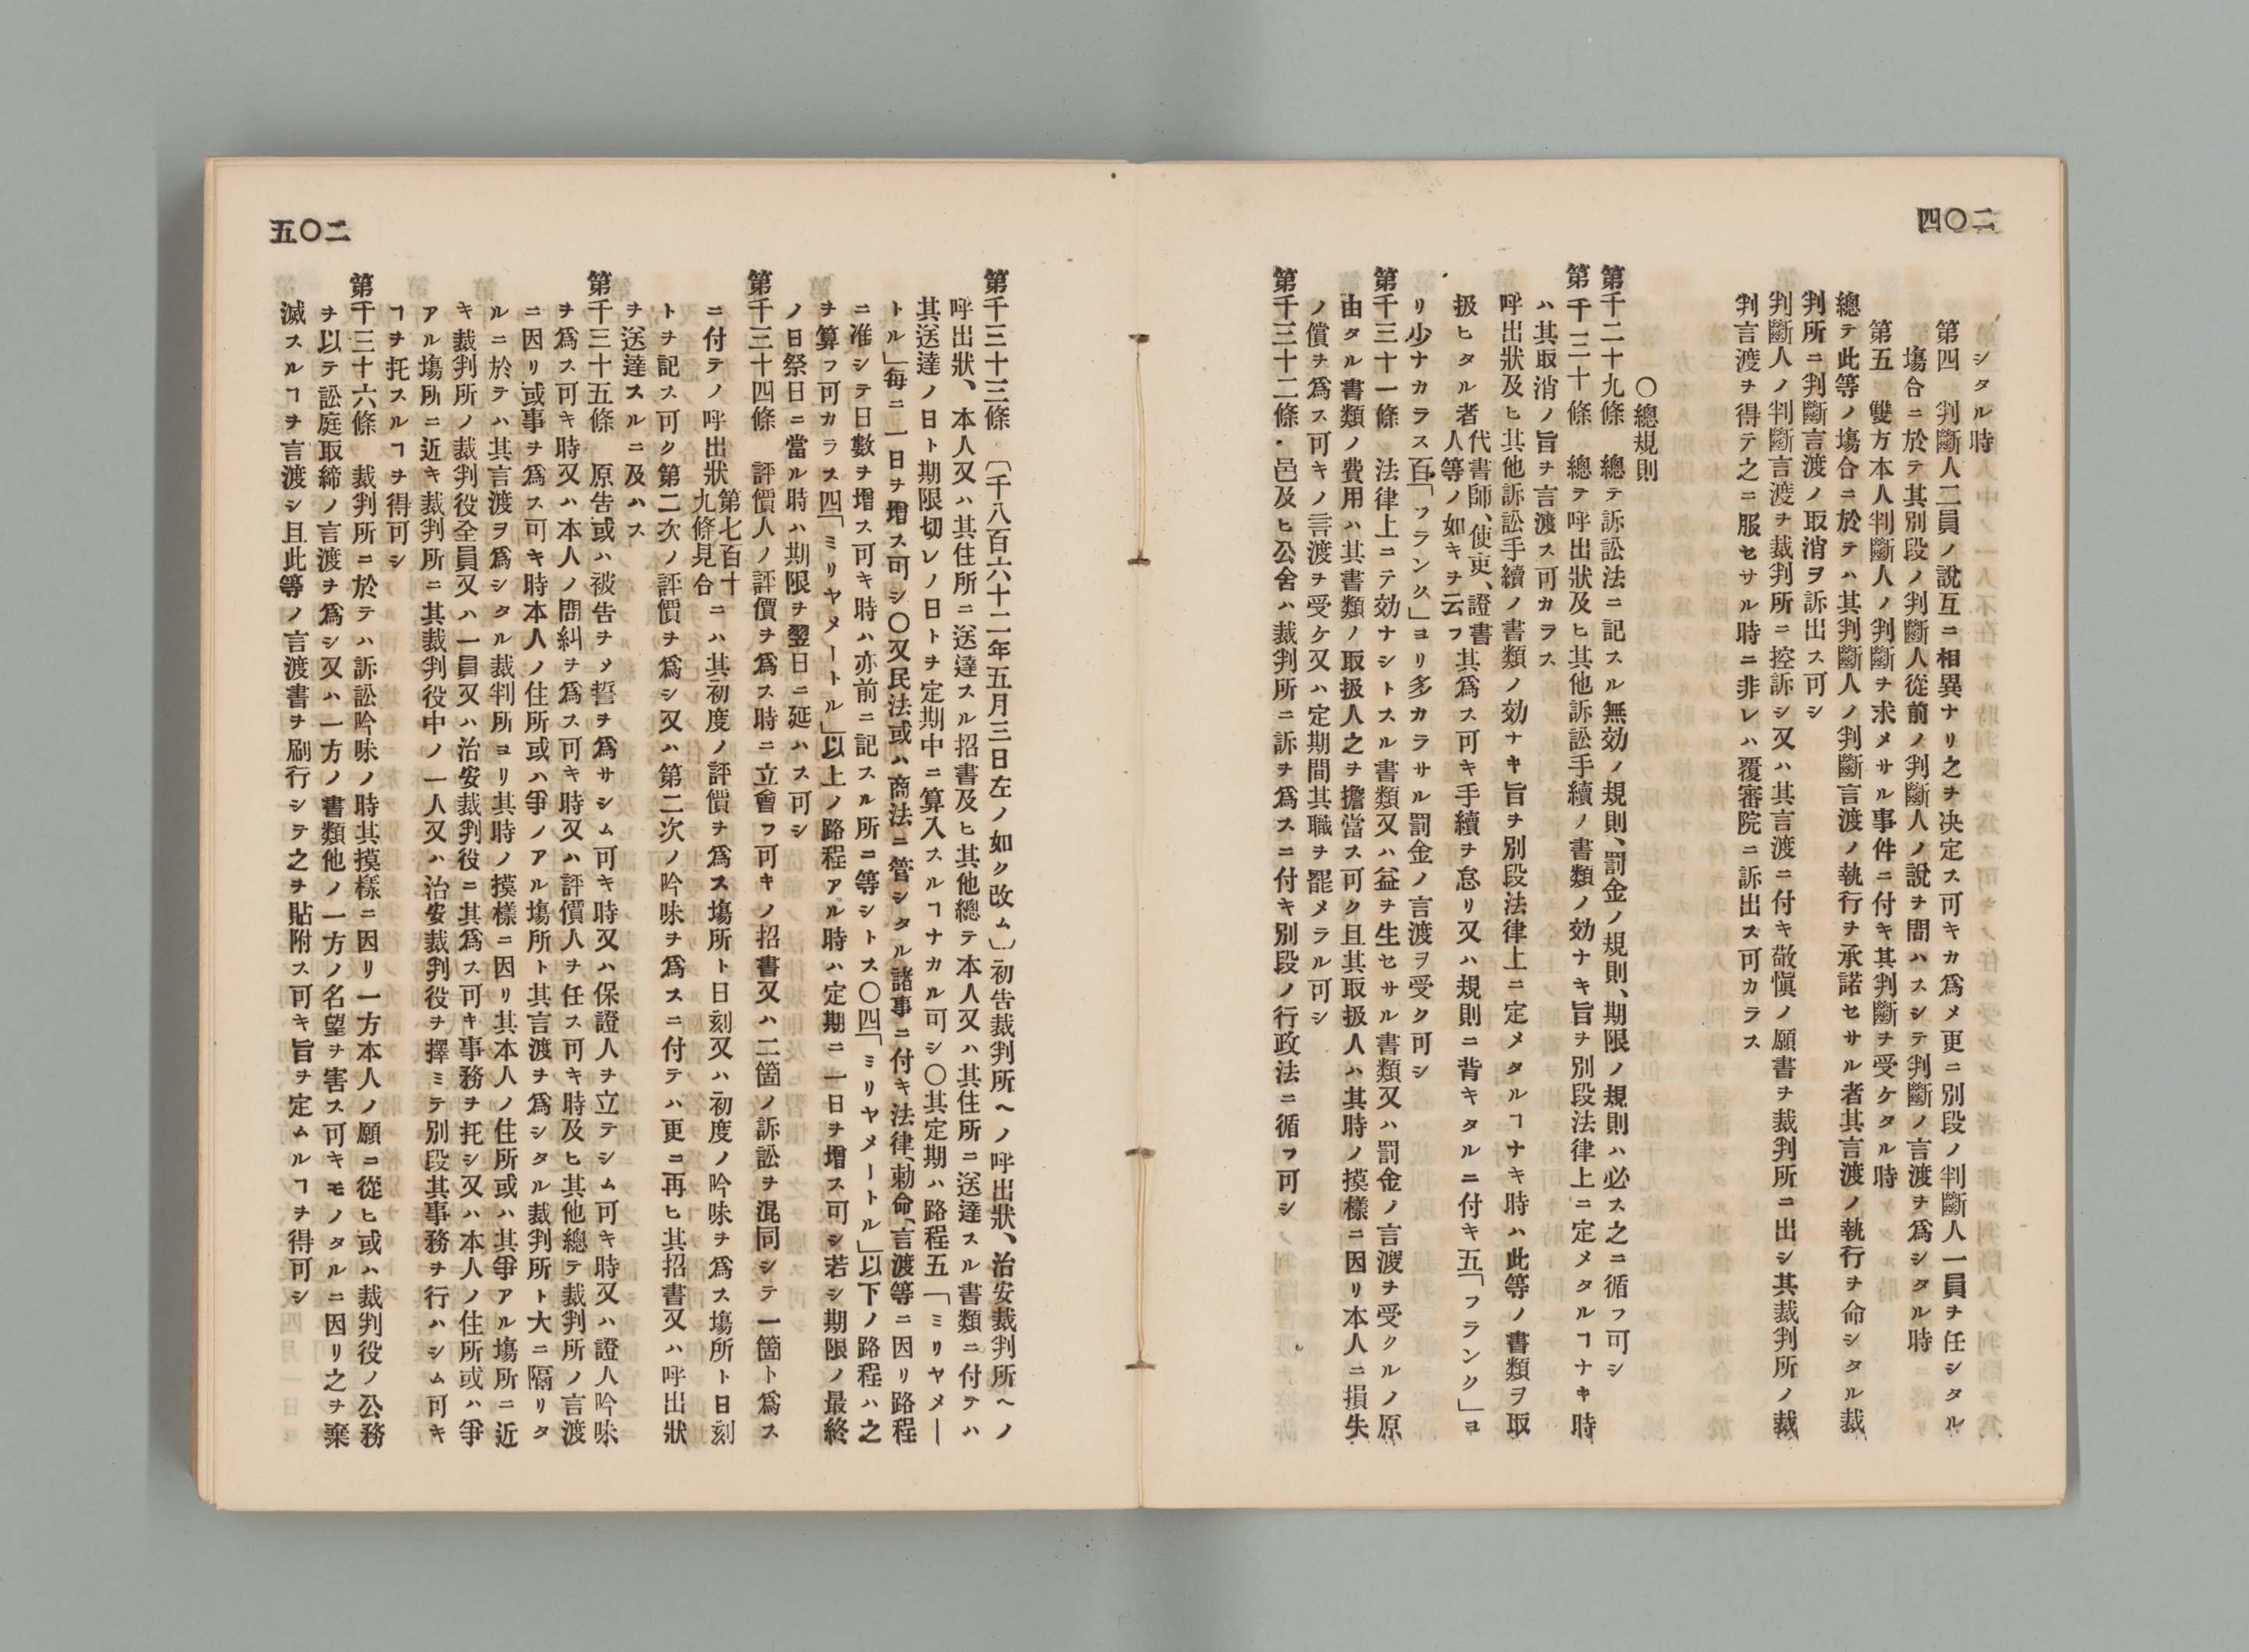 二〇四
シタル時
第四　判斷人二員ノ說互ニ相異ナリ之ヲ決定ス可キカ爲メ更ニ別段ノ判斷人一員ヲ任シタル
塲合ニ於テ其別段ノ判斷人從前ノ判斷人ノ說ヲ聞ハスシテ判斷ノ言渡ヲ爲シタル時
第五　雙方本人判斷人ノ判斷ヲ求メサル事件ニ付キ其判斷ヲ受ケタル時
總テ此等ノ塲合ニ於テハ其判斷人ノ判斷言渡ノ執行ヲ承諾セサル者其言渡ノ執行ヲ命シタル裁
判所ニ判斷言渡ノ取消ヲ訴出ス可シ
判斷人ノ判斷言渡ヲ裁判所ニ控訴シ又ハ其言渡ニ付キ敬愼ノ願書ヲ裁判所ニ出シ其裁判所ノ裁
判言渡ヲ得テ之ニ服セサル時ニ非レハ覆審院ニ訴出ス可カラス
〇總規則
第千二十九條　總テ訴訟法ニ記スル無効ノ規則、罰金ノ規則、期限ノ規則ハ必ス之ニ循フ可シ
第千三十條　總テ呼出狀及ヒ其他訴訟手續ノ書類ノ効ナキ旨ヲ別段法律上ニ定メタルヿナキ時
ハ其取消ノ旨ヲ言渡ス可カラス
呼出狀及ヒ其他訴訟手續ノ書類ノ効ナキ旨ヲ別段法律上ニ定メタルヿナキ時ハ此等ノ書類ヲ取
扱ヒタル者代書師、使吏、證書人等ノ如キヲ云フ其爲ス可キ手續ヲ怠リ又ハ規則ニ背キタルニ付キ五「フランク」ヨ
リ少ナカラス百「フランク」ヨリ多カラサル罰金ノ言渡ヲ受ク可シ
第千三十一條　法律上ニテ効ナシトスル書類又ハ益ヲ生セサル書類又ハ罰金ノ言渡ヲ受クルノ原
由タル書類ノ費用ハ其書類ノ取扱人之ヲ擔當ス可ク且其取扱人ハ其時ノ摸樣ニ因リ本人ニ損失
ノ償ヲ爲ス可キノ言渡ヲ受ケ又ハ定期間其職ヲ罷メラル可シ
第千三十二條　邑及ヒ公舍ハ裁判所ニ訴ヲ爲スニ付キ別段ノ行政法ニ循フ可シ
二〇五
第千三十三條〔千八百六十二年五月三日左ノ如ク改ム〕初告裁判所ヘノ呼出狀、治安裁判所ヘノ
呼出狀、本人又ハ其住所ニ送達スル招書及ヒ其他總テ本人又ハ其住所ニ送達スル書類ニ付テハ
其送達ノ日ト期限切レノ日トヲ定期中ニ算入スルヿナカル可シ〇其定期ハ路程五「ミリヤメー
トル」每ニ一日ヲ增ス可シ〇又民法或ハ商法ニ管シタル諸事ニ付キ法律、勅命、言渡等ニ因リ路程
ニ准シテ日數ヲ增ス可キ時ハ亦前ニ記スル所ニ等シトス〇四「ミリヤメートル」以下ノ路程ハ之
ヲ算フ可カラス四「ミリヤメートル」以上ノ路程アル時ハ定期ニ一日ヲ增ス可シ若シ期限ノ最終
ノ日祭日ニ當ル時ハ期限ヲ翌日ニ延ハス可シ
第千三十四條　評價人ノ評價ヲ爲ス時ニ立會フ可キノ招書又ハ二箇ノ訴訟ヲ混同シテ一箇ト爲ス
ニ付テノ呼出狀第七百十九條見合ニハ其初度ノ評價ヲ爲ス塲所ト日刻又ハ初度ノ吟味ヲ爲ス塲所ト日刻
トヲ記ス可ク第二次ノ評價ヲ爲シ又ハ第二次ノ吟味ヲ爲スニ付テハ更ニ再ヒ其招書又ハ呼出狀
ヲ送達スルニ及ハス
第千三十五條　原告或ハ被告ヲメ誓ヲ爲サシム可キ時又ハ保證人ヲ立テシム可キ時又ハ證人吟味
ヲ爲ス可キ時又ハ本人ノ問糾ヲ爲ス可キ時又ハ評價人ヲ任ス可キ時及ヒ其他總テ裁判所ノ言渡
ニ因リ或事ヲ爲ス可キ時本人ノ住所或ハ爭ノアル塲所ト其言渡ヲ爲シタル裁判所ト大ニ隔リタ
ルニ於テハ其言渡ヲ爲シタル裁判所ヨリ其時ノ摸樣ニ因リ其本人ノ住所或ハ其爭アル塲所ニ近
キ裁判所ノ裁判役全員又ハ一員又ハ治安裁判役ニ其爲ス可キ事務ヲ托シ又ハ本人ノ住所或ハ爭
アル塲所ニ近キ裁判所ニ其裁判役中ノ一人又ハ治安裁判役ヲ擇ミテ別段其事務ヲ行ハシム可キ
ヿヲ托スルヿヲ得可シ
第千三十六條　裁判所ニ於テハ訴訟吟味ノ時其摸樣ニ因リ一方本人ノ願ニ從ヒ或ハ裁判役ノ公務
ヲ以テ訟庭取締ノ言渡ヲ爲シ又ハ一方ノ書類他ノ一方ノ名望ヲ害ス可キモノタルニ因リ之ヲ棄
滅スルヿヲ言渡シ且此等ノ言渡書ヲ刷行シテ之ヲ貼附ス可キ旨ヲ定ムルヿヲ得可シ